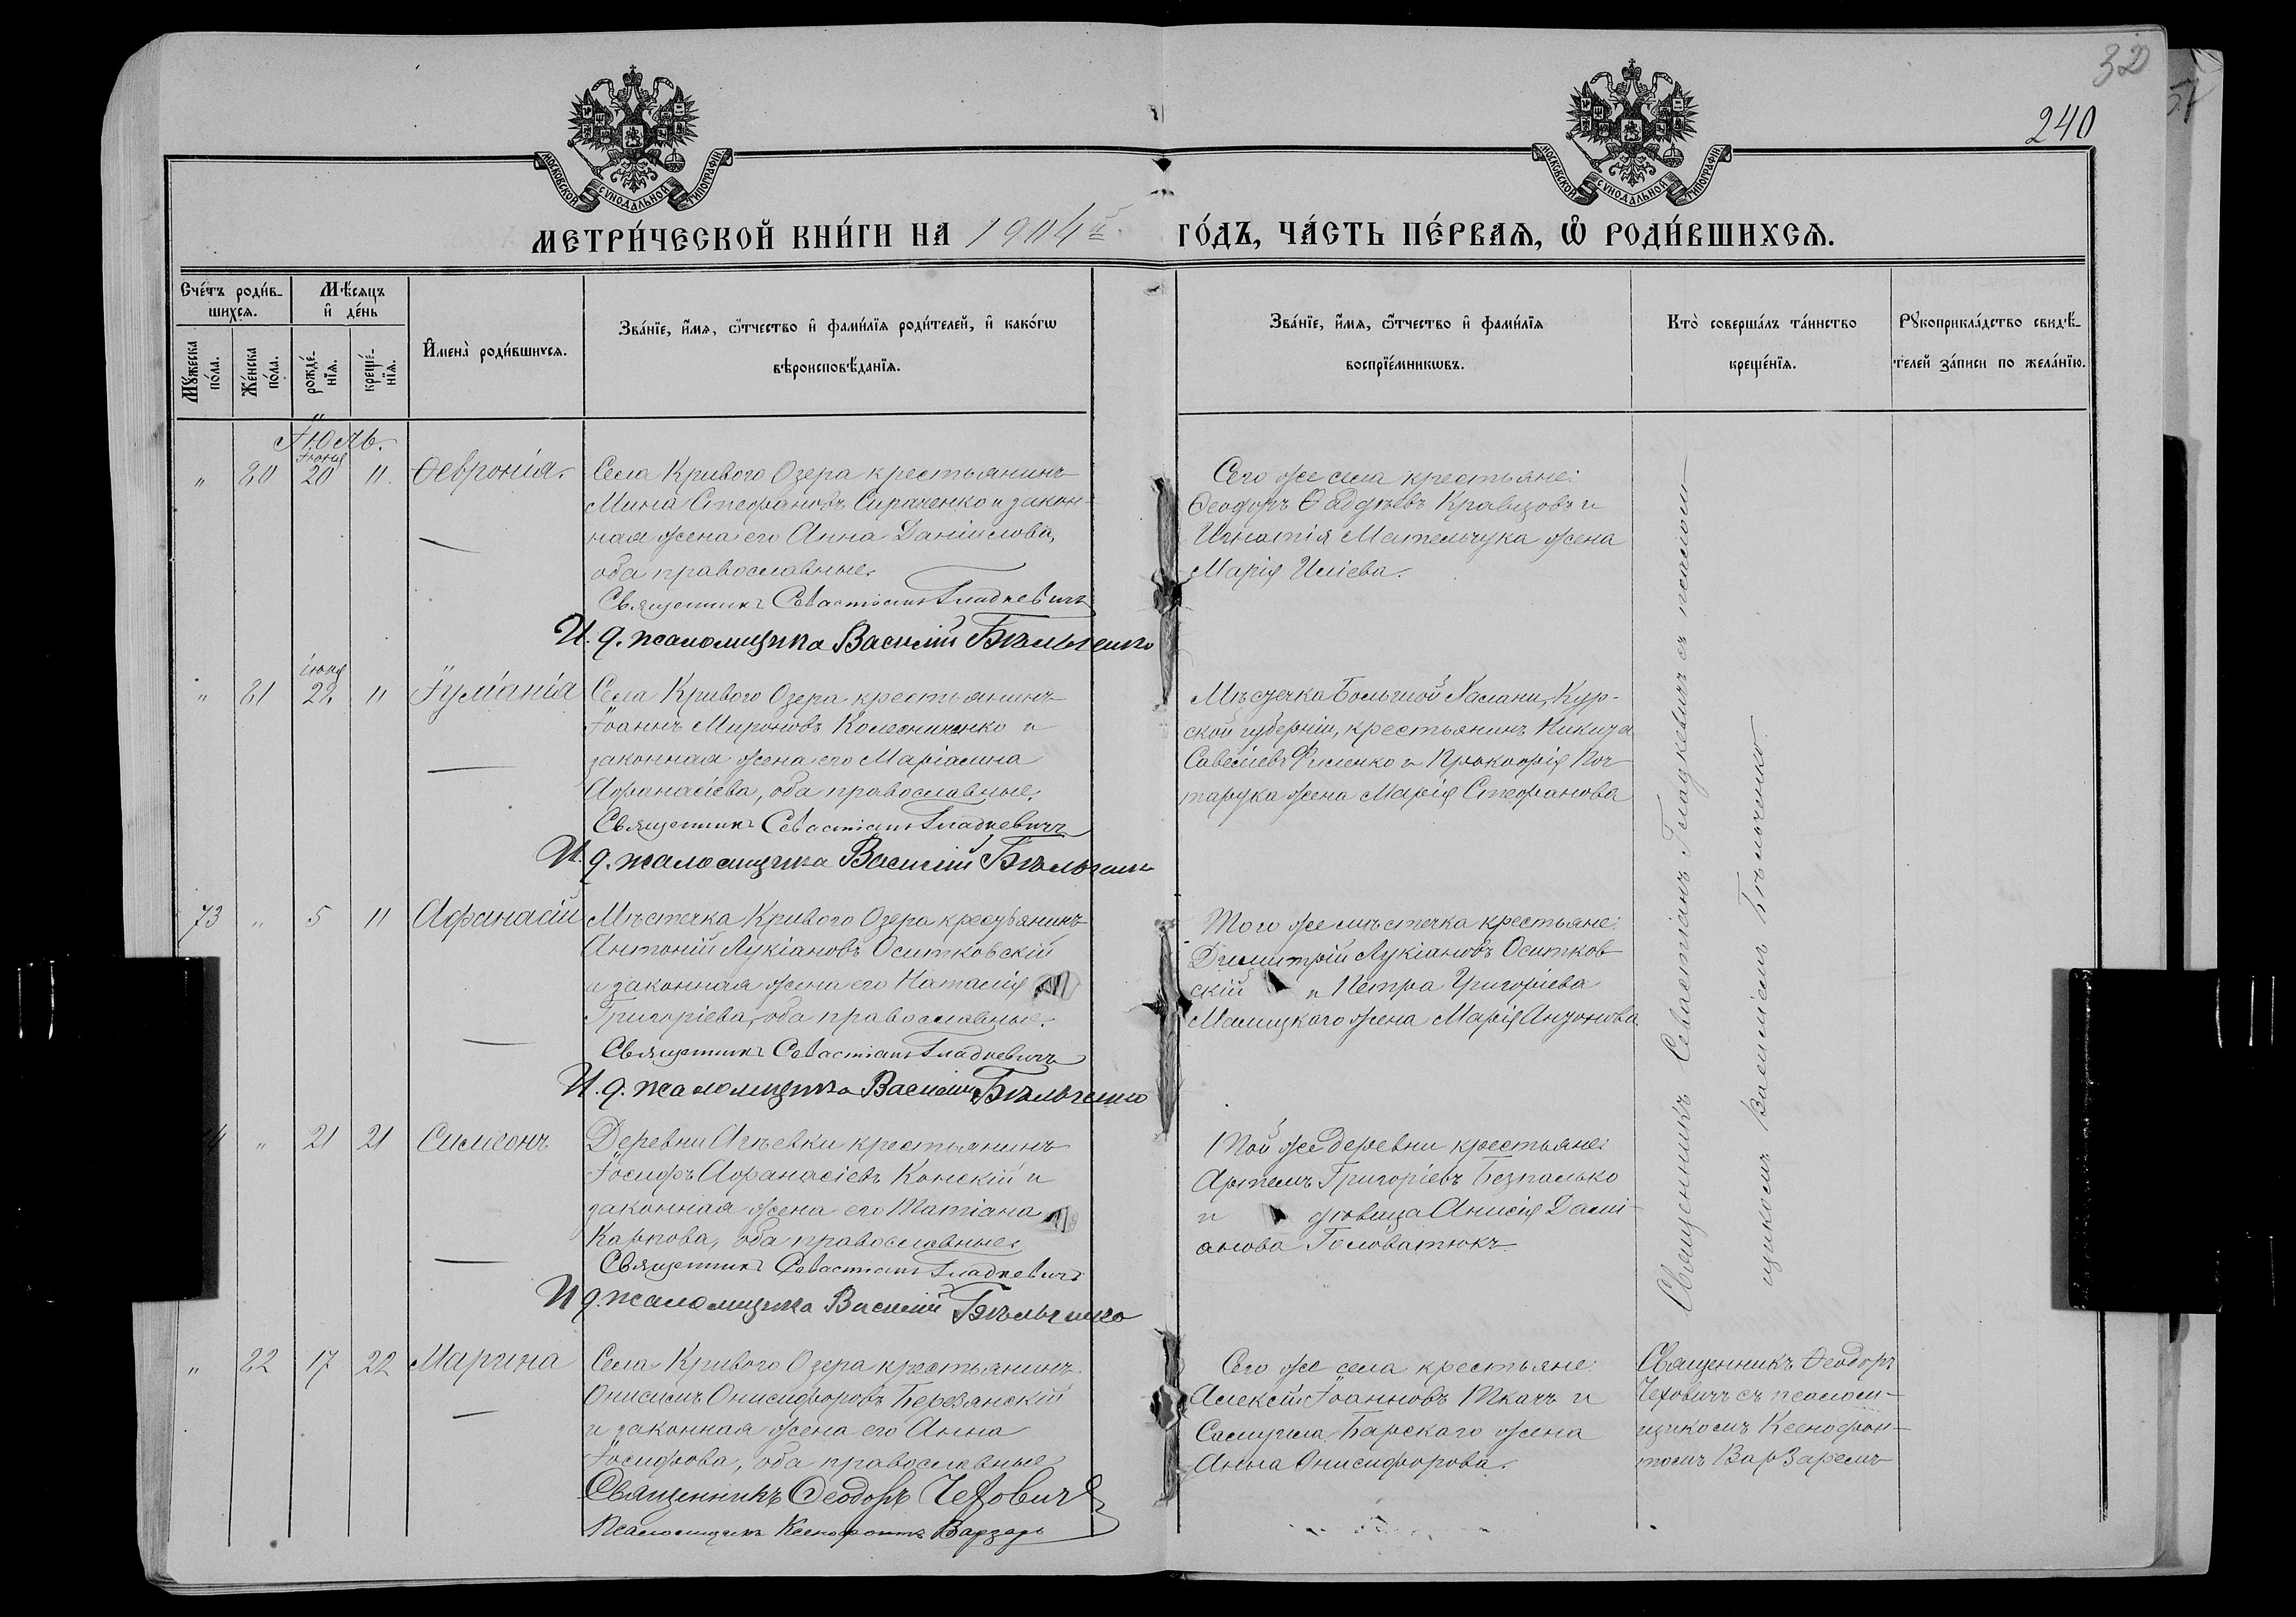 32
240
МОСКОВСКОЙ СУНОДАЛЬНОЙ ТИПОГРАФІИ
МОСКОВСКОЙ СУНОДАЛЬНОЙ ТИПОГРАФІИ
МЕТРИ́ЧЕСКОЙ КНИ́ГИ НА 1904й ГО́ДЪ, ЧА́СТЬ ПЕ́РВАѦ, Ѡ РОДИ́ВШИХСѦ.
Сче́тъ роди́в-
шихсѧ.
Мѣ́сѧцъ
и҆ де́нь
Мꙋ́жеска по́ла.
Же́нска по́ла.
рожде́-
нїѧ.
креще́-
нїѧ.
И҆мена̀ роди́вшихсѧ.
Зва́нїе, и҆́мѧ, ѻ҆́тчество и҆ фами́лїѧ роди́телей, и҆ како́гѡ
вѣроисповѣ́данїѧ.
Зва́нїе, и҆́мѧ, ѻ҆́тчество и҆ фами́лїѧ
воспрїе́мникѡвъ.
Кто̀ соверша́лъ та́инство
креще́нїѧ.
Рꙋкоприкла́дство свидѣ́-
телей за́писи по жела́нїю.
Іюль.
Іюня
" 80 20 11. Ѳевронія.
Села Кривого Озера крестьянинъ
Мина Стефановъ Сираченко и закон-
ная жена его Анна Даніилова,
оба православные.
Священникъ Севастіанъ Гладкевичъ
И. д. псаломщика Василій Бѣльченко
Сего же села крестьяне:
Ѳеодоръ Ѳаддѣевъ Кравцовъ и
Игнатія Мательчука жена
Марія Иліева.
іюня
" 81 22 11 Іуліанія
Села Кривого Озера крестьянинъ
Іоаннъ Мироновъ Колесниченко и
законная жена его Маріамна
Афанасіева, оба православные.
Священникъ Севастіанъ Гладкевичъ
И. д. псаломщика Василій Бѣльченко
Мѣстечка Большой Кур-
ской губерніи, крестьянинъ Никита
Савеліевъ Филенко и Прокофія
жена Марія Стефанова
73 " 5 11 Афанасій
Мѣстечка Кривого Озера крестьянинъ
Антоній Лукіановъ Оситковскій
и законная жена его Наталія
Григоріева, оба православные.
Священникъ Севастіанъ Гладкевичъ
И. д. псаломщика Василій Бѣльченко
Того же мѣстечка крестьяне:
Димитрій Лукіановъ Оситков-
скій и Петра Григоріева
Малицкаго жена Марія Антонова.
" 21 21 Симеонъ
Деревни Агѣевки крестьянинъ
Іосифъ Афанасіевъ Конскій и
законная жена его Татіана
Карпова, оба православные.
Священникъ Севастіанъ Гладкевичъ
И. д. псаломщика Василій Бѣльченко
Той же деревни крестьяне:
Артемъ Григоріевъ Безпалько
и дѣвица Анисія Дамі-
анова Головатюкъ.
Священникъ Севастіанъ Гладкевичъ съ псалом-
щикомъ Василіемъ Бѣльченко.
" 82 17 22 Марина
Села Кривого Озера крестьянинъ
Онисимъ Онисифоровъ Березанскій
и законная жена его Анна
Іосифова, оба православные
Священникъ Ѳеодоръ Чеховичъ
Псаломщикъ Ксенофонтъ Варзарь
Сего же села крестьяне:
Алексій Іоанновъ Ткачъ и
Самуила Барскаго жена
Анна Онисифорова.
Священникъ Ѳеодоръ
Чеховичъ съ псалом-
щикомъ Ксенофон-
томъ Варзаремъ